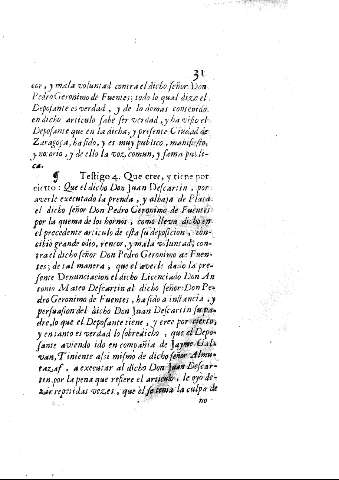 31
cor, y mala voluntad contra el dicho señor Don
Pedro Geronimo de Fuentes; todo lo qual dize el
Deposante es verdad, y de lo demas contenido
en dicho articulo sabe ser verdad, y ha visto el
Deposante que en la dicha, y presente Ciudad de
Zaragoça, ha sido, y es muy publico, manifiesto,
y notorio, y de ello la voz comun, y fama publi-
ca.
¶ Testigo 4. Que cree, y tiene por
cierto: Que el dicho Don Juan Descartin, por
averle executado la prenda, y alhaja de Plata
el dicho señor Don Pedro Geronimo de Fuentes
por la quema de los hornos, como lleva dicho en
el precedente articulo de esta su deposicion, con-
cibio grande odio, rencor, y mala voluntad; con-
tra el dicho señor Don Pedro Geronimo de Fuen-
tes; de tal manera, que el averle dado la pre-
sente Denunciacion el dicho Licenciado Don An-
tonio Mateo Descartin al dicho señor Don Pe-
dro Geronimo de Fuentes, ha sido a instancia, y
persuasion del dicho Don Juan Descartin su pa-
dre, lo que el Deposante tiene, y cree por cierto,
y en tanto es verdad lo sobredicho, que el Depo-
sante aviendo ido en compañia de Jayme Gal-
van, Tiniente assi mismo de dicho señor Almu-
tazaf, a executar al dicho Don Juan Descar-
tin, por la pena que refiere el articulo, le oyò de-
zar repetidas vezes, que èl no tenia la culpa de
no